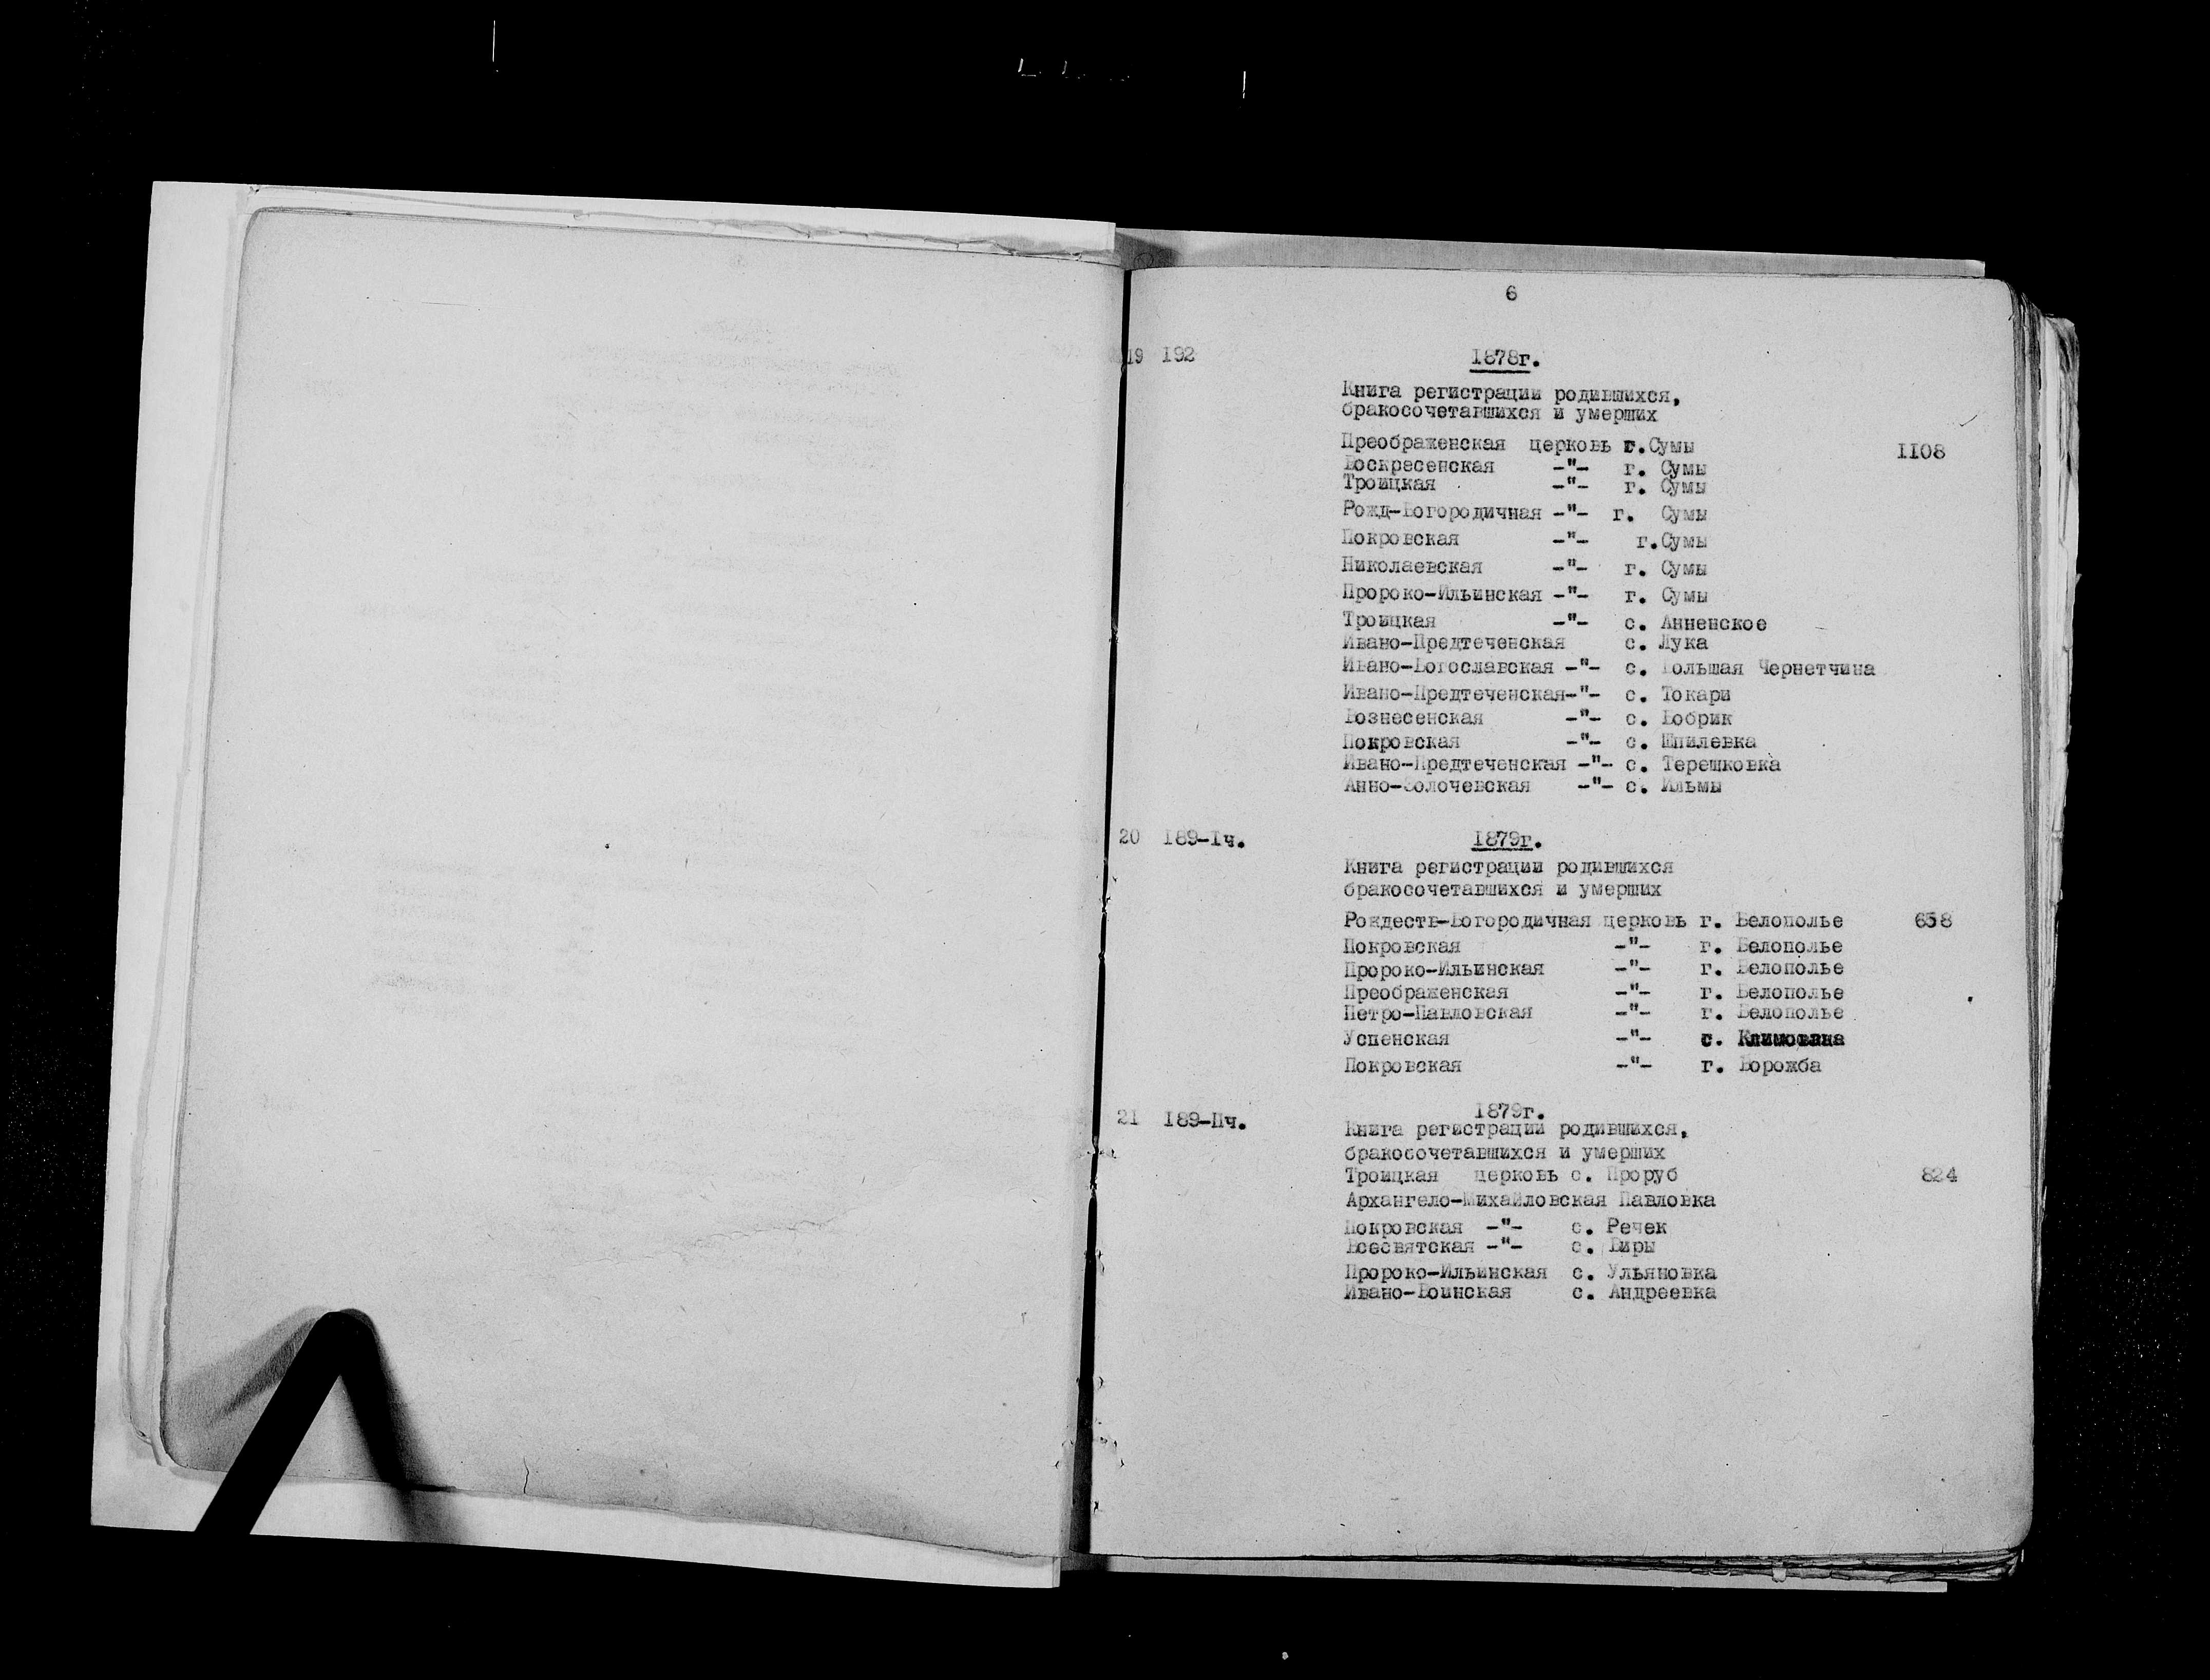 6
19 192 1878г.
Книга регистрации родившихся,
бракосочетавшихся и умерших
Преображенская церковь г.Сумы 1108
Воскресенская -"- г. Сумы
Троицкая -"- г. Сумы
Рожд-Богородичная -"- г. Сумы
Покровская -"- г.Сумы
Николаевская -"- г. Сумы
Пророко-Ильинская -"- г. Сумы
Троицкая -"- с. Анненское
Ивано-Предтеченская с. Лука
Ивано-Богославская -"- с. Большая Чернетчина
Ивано-Предтеченская-"- с. Токари
Вознесенская -"- с. Бобрик
Покровская -"- с. Шпилевка
Ивано-Предтеченская -"- с. Терешковка
Анно-Золочевская -"- с. Ильмы
20 189-Iч. 1879г.
Книга регистрации родившихся
бракосочетавшихся и умерших
Рождеств-Богородичная церковь г. Белополье 658
Покровская -"- г. Белополье
Пророко-Ильинская -"- г. Белополье
Преображенская -"- г. Белополье
Петро-Павловская -"- г. Белополье
Успенская -"- с.
Покровская -"- г. Ворожба
21 189-IIч. 1879г.
Книга регистрации родившихся,
бракосочетавшихся и умерших
Троицкая церковь с. Проруб 824
Архангело-Михайловская Павловка
Покровская -"- с. Речек
Всесвятская -"- с. Виры
Пророко-Ильинская с. Ульяновка
Ивано-Воинская с. Андреевка